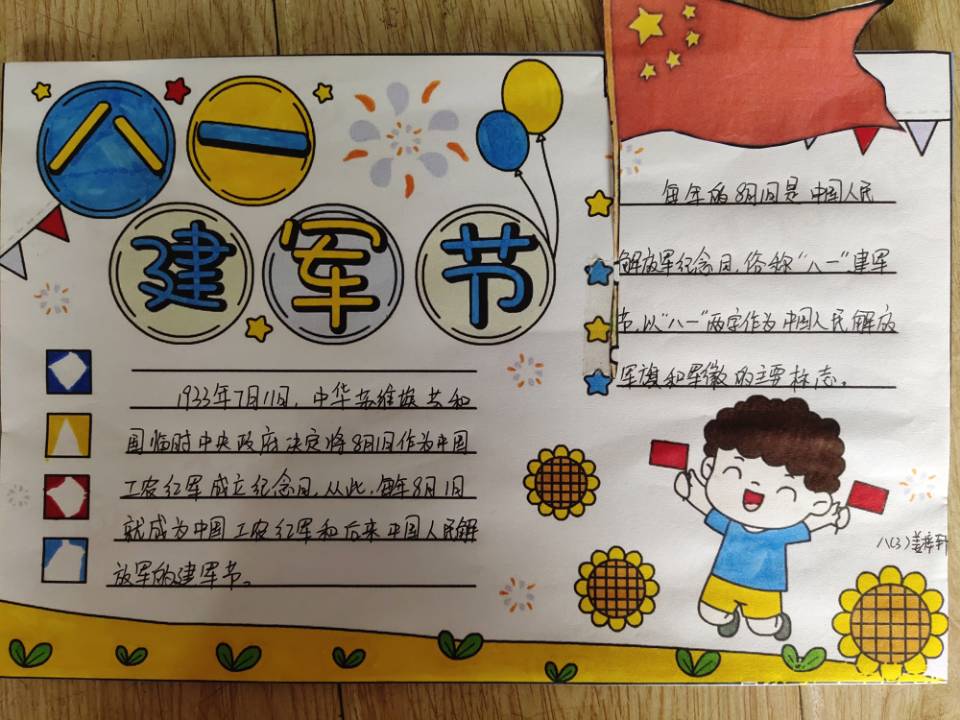 八一
建军节
每年的8月1日是中国人民
解放军纪念日，俗称“八一”建军
节，以“八一”两字作为中国人民解放
军旗和军徽的主要标志。
1933年7月11日，中华苏维埃共和
国临时中央政府决定将8月1日作为中国
工农红军成立纪念日，从此，每年8月1日
就成为中国工农红军和后来中国人民解
放军的建军节。
八(3)姜梓轩